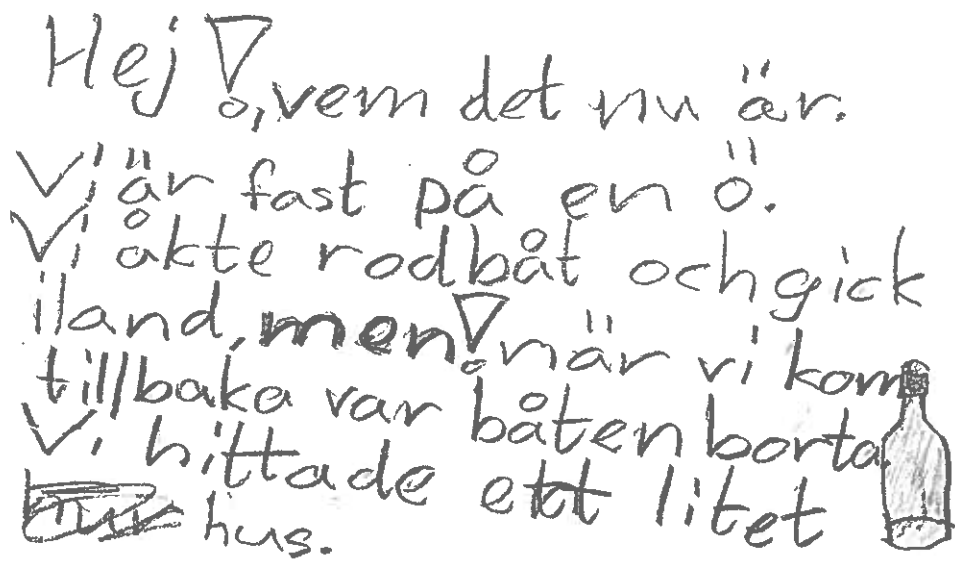 Hej!, vem det nu är.
Vi är fast på en ö.
Vi åkte rodbåt och gick
iland, men! när vi kom
tillbaka var båten borta
Vi hittade ett litet
hus.